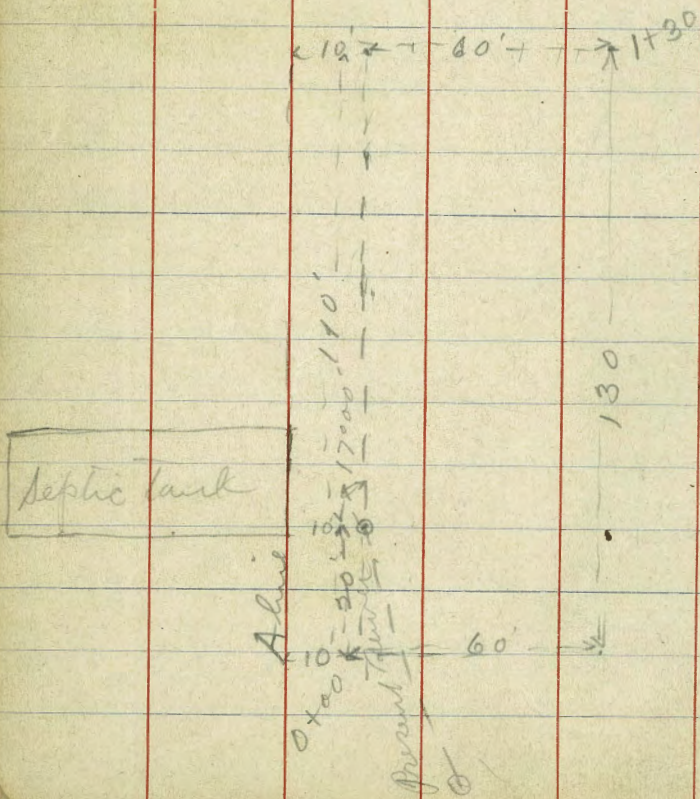 10' 60' 1+30
110'
17°00'
130
Septic Tank
10
20'
A line
10 60
0+00
Present Sewer